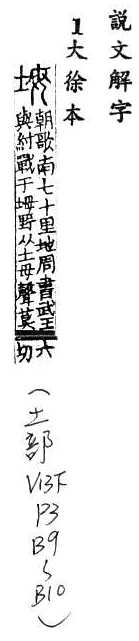 說文解字
1大徐本
坶
朝歌南七十里地周書武王
與紂戰于坶野从土母聲莫
六
切
（土部
V13下
P3
B9
〜
B10）